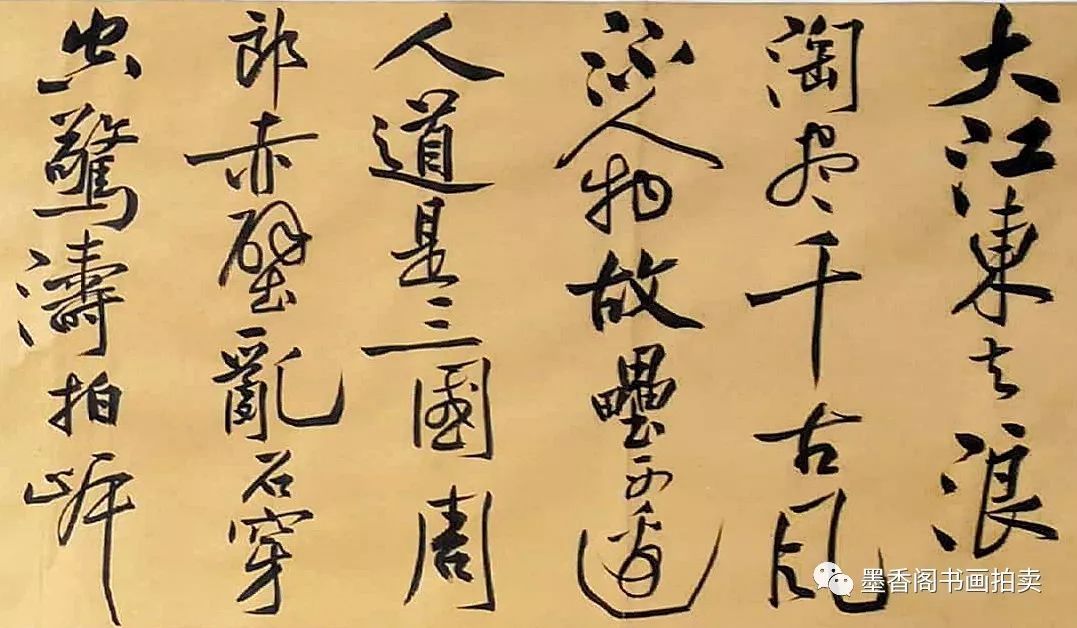 大江東去浪
淘盡千古風
流人物故壘西邊
人道是三國周
郎赤壁亂石穿
空驚濤拍岸
墨香阁书画拍卖